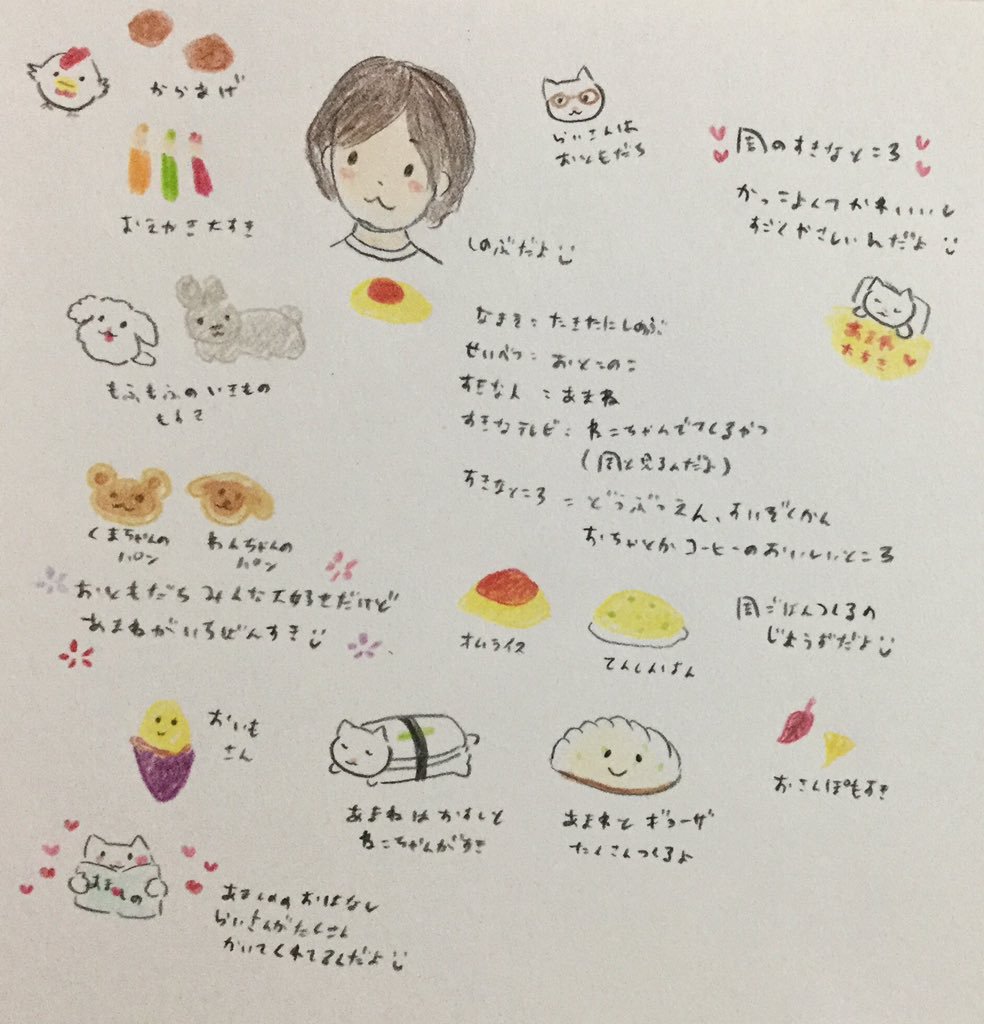 からあげ
らいさんは
おともだち
周のすきなところ
かっこよくてかわいいし
すごくやさしいんだよ
おえかき大すき
しのぶだよ
なまえ：たきたにしのぶ
せいべつ：おとこのこ
すきな人：あまね
すきなテレビ：ねこちゃんでてくるやつ
（周と見るんだよ）
すきなところ：どうぶつえん、すいぞくかん
おちゃとかコーヒーのおいしいところ
あまね
大すき
もふもふのいきもの
もすき
くまちゃんの
パン
わんちゃんの
パン
おともだちみんな大好きだけど
あまねがいちばんすき
オムライス
てんしんはん
周ごはんつくるの
じょうずだよ
おいも
さん
あまねはおすしと
ねこちゃんがすき
あまねとギョーザ
たくさんつくるよ
おさんぽもすき
あましの
あましののおはなし
らいさんがたくさん
かいてくれてるんだよ